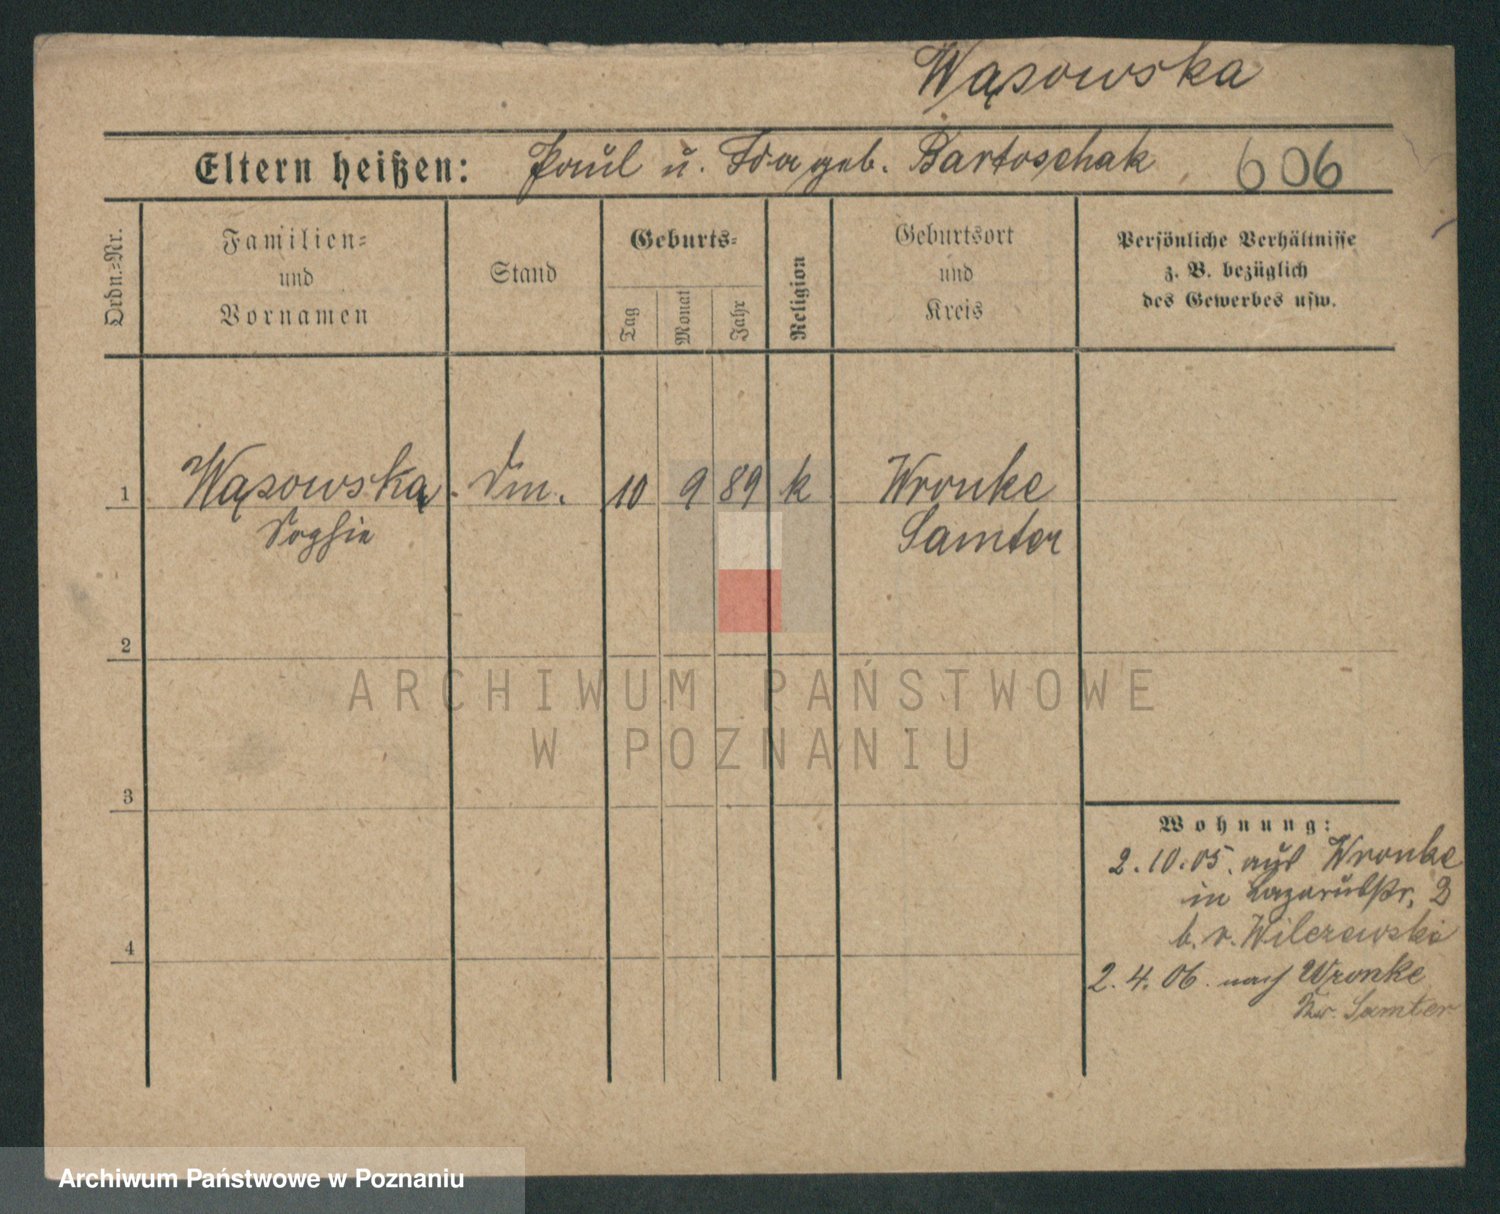 Wąsowska
Eltern heißen: Paul u. Ida geb. Bartoschak 606
Ordn.=Nr.
Familien=
und
Vornamen
Stand
Geburts=
Tag
Monat
Jahr
Religion
Geburtsort
und
Kreis
Persönliche Verhältnisse
z. B. bezüglich
des Gewerbes usw.
1 Wąsowska 10 9 89 k Wronke
Sophie Samter
2
3
4
Wohnung:
2.10.05. aus Wronke
in Lazarusstr. 2
b. v. Wilczewski
2.4.06. nach Wronke
Kr. Samter
ARCHIWUM PAŃSTWOWE
W POZNANIU
Archiwum Państwowe w Poznaniu